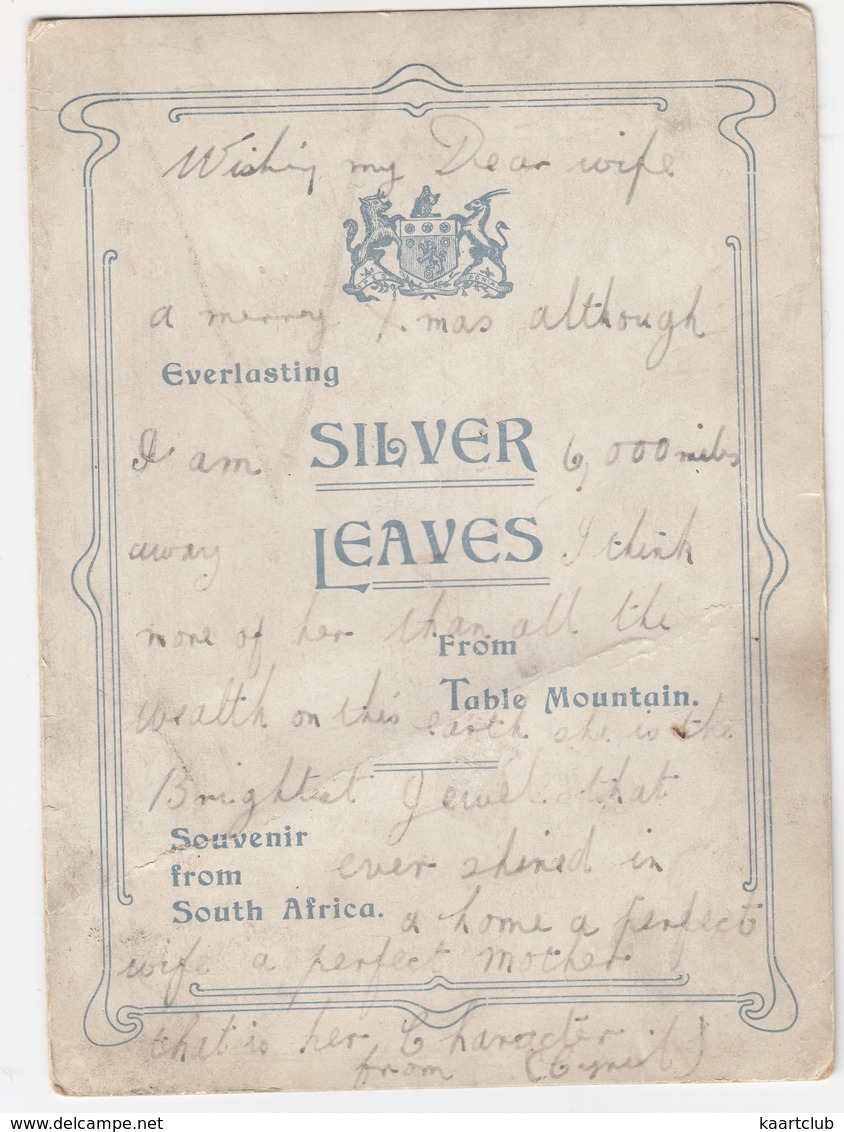 Wishing my Dear wife
a merry Xmas although
Everlasting
I am SILVER 6,000 miles
away LEAVES I think
more of her than all the
From
Table Mountain.
wealth on this earth she is the
Brightest Jewel that
Souvenir
ever shined in
from
South Africa.
a home a perfect
wife a perfect mother
that is her Character
from (Cyril)
kaartclub